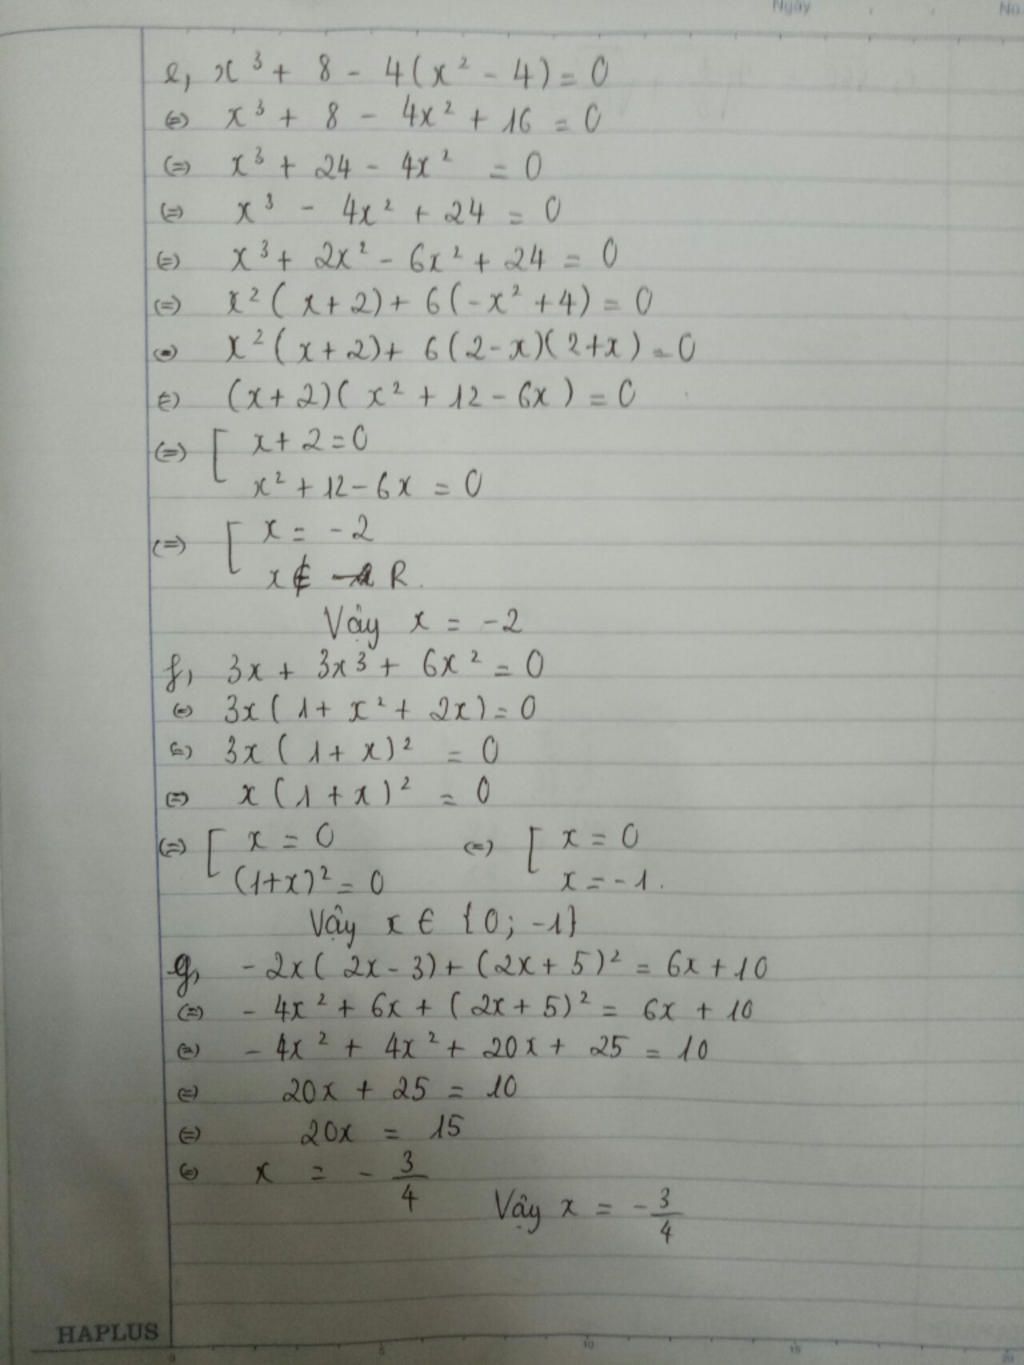 Ngày No.
e, x³ + 8 - 4(x² - 4) = 0
(=) x³ + 8 - 4x² + 16 = 0
(=) x³ + 24 - 4x² = 0
(=) x³ - 4x² + 24 = 0
(=) x³ + 2x² - 6x² + 24 = 0
(=) x²(x+2) + 6(-x² + 4) = 0
(=) x²(x+2) + 6(2-x)(2+x) = 0
(=) (x+2)(x² + 12 - 6x) = 0
(=) [ x + 2 = 0
x² + 12 - 6x = 0
(=) [ x = -2
x ∉ R.
Vậy x = -2
f, 3x + 3x³ + 6x² = 0
(=) 3x(1 + x² + 2x) = 0
(=) 3x(1 + x)² = 0
(=) x(1 + x)² = 0
(=) [ x = 0 (=) [ x = 0
(1+x)² = 0 x = -1.
Vậy x ∈ {0; -1}
g, -2x(2x - 3) + (2x + 5)² = 6x + 10
(=) - 4x² + 6x + (2x + 5)² = 6x + 10
(=) - 4x² + 4x² + 20x + 25 = 10
(=) 20x + 25 = 10
(=) 20x = 15
(=) x = - 3/4
Vậy x = - 3/4
HAPLUS
0 5 10 15 20